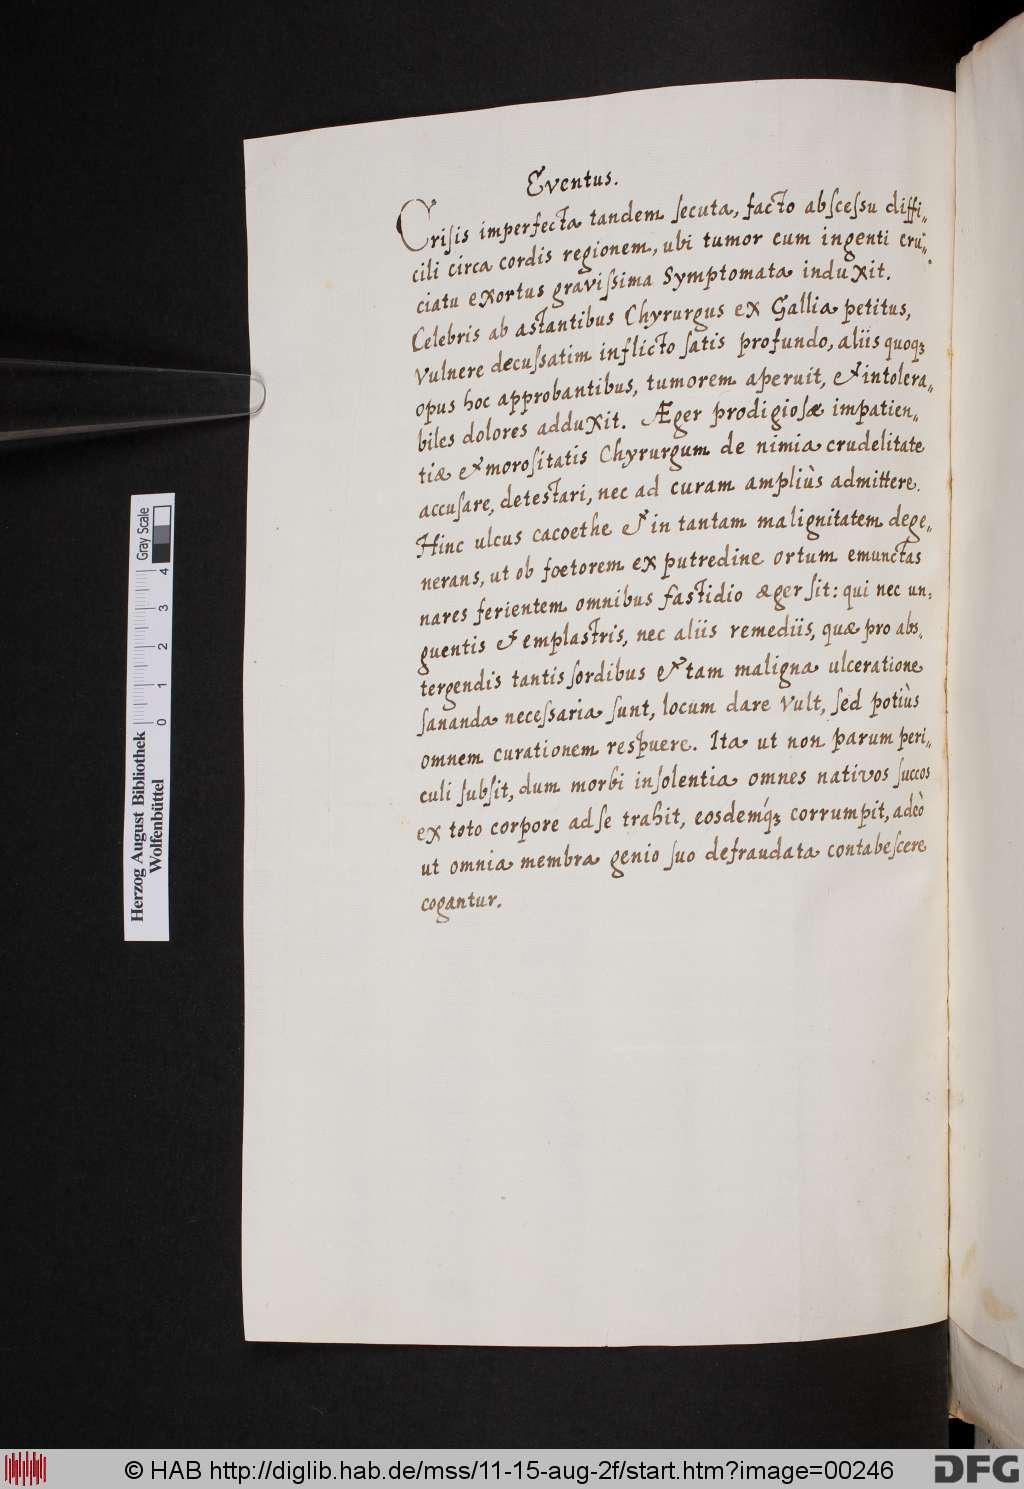 Eventus.
Crisis imperfecta tandem ſecuta, facto abſceſsu diffi„
cili circa cordis regionem, ubi tumor cum ingenti cru„
ciatu exortus graviſsima Symptomata induxit.
Celebris ab astantibus Chyrurgus ex Gallia petitus,
vulnere decuſsatim inflicto ſatis profundo, aliis quoqꝫ
opus hoc approbantibus, tumorem aperuit, & intolera„
biles dolores adduxit. Æger prodigioſæ impatien„
tiæ & moroſitatis Chyrurgum de nimia crudelitate
accuſare, detestari, nec ad curam ampliùs admittere.
Hinc ulcus cacoethe & in tantam malignitatem dege„
nerans, ut ob fœtorem ex putredine ortum emunctas
nares ferientem omnibus faſtidio æger ſit: qui nec un„
guentis & emplaſtris, nec aliis remediis, quæ pro abs„
tergendis tantis ſordibus & tam maligna ulceratione
ſananda neceſsaria ſunt, locum dare vult, ſed potiùs
omnem curationem respuere. Ita ut non parum peri„
culi ſubſit, dum morbi inſolentia omnes nativos ſuccos
ex toto corpore ad ſe trahit, eosdemq́ꝫ corrumpit, adeò
ut omnia membra genio ſuo defraudata contabeſcere
cogantur.
Herzog August Bibliothek
Wolfenbüttel
0 1 2 3 4
Gray Scale
© HAB http://diglib.hab.de/mss/11-15-aug-2f/start.htm?image=00246
DFG